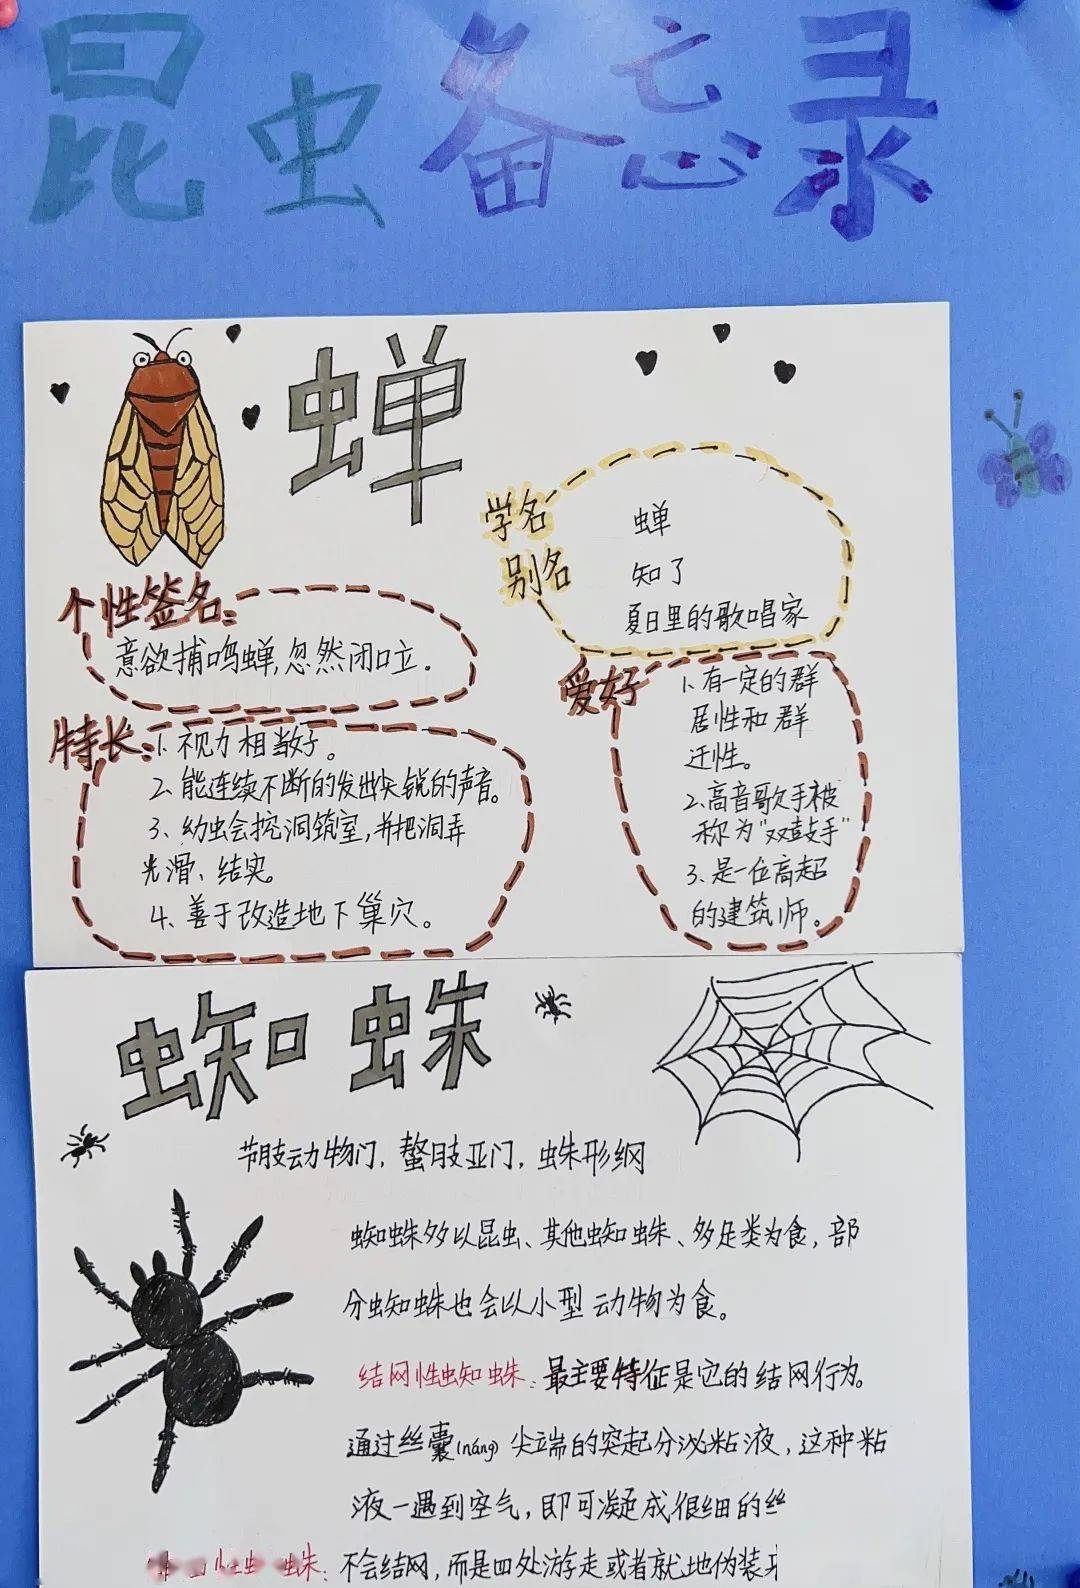 昆虫备忘录
蝉
学名 蝉
别名 知了
夏日里的歌唱家
个性签名:
意欲捕鸣蝉,忽然闭口立。
爱好
1、有一定的群
居性和群
迁性。
2、高音歌手被
称为"双鼓手"
3、是一位高超
的建筑师。
特长:1、视力相当好。
2、能连续不断的发出尖锐的声音。
3、幼虫会挖洞筑室,并把洞弄
光滑、结实。
4、善于改造地下巢穴。
蜘蛛
节肢动物门,螯肢亚门,蛛形纲
蜘蛛多以昆虫、其他蜘蛛、多足类为食,部
分蜘蛛也会以小型动物为食。
结网性蜘蛛:最主要特征是它的结网行为。
通过丝囊(náng)尖端的突起分泌粘液,这种粘
液一遇到空气,即可凝成很细的丝
蛛:不会结网,而是四处游走或者就地伪装